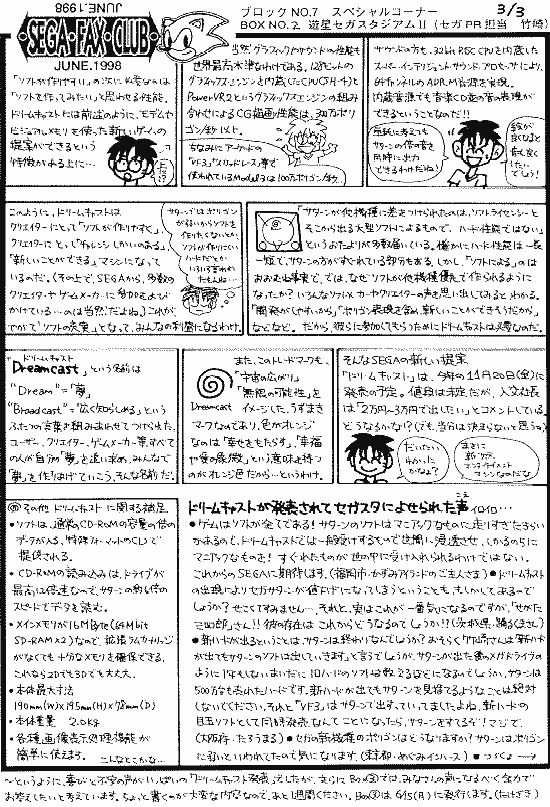 JUNE.1998
SEGA・FAX・CLUB
JUNE.1998
ブロックNO.7 スペシャルコーナー
3/3
BOX NO.2 遊星セガスタジアムⅡ (セガPR担当 竹崎)
「ソフトが作りやすい」の次に必要なのは
「ソフトを作ってみたい」と思わせる性能。
ドリームキャストには前述のように、モデムや
ビジュアルメモリを使った新しいゲームの
提案ができるという
特徴がある上に…
当然グラフィックやサウンドの性能も
世界最高水準なわけである。128ビットの
グラフィックスエンジンを内蔵したCPU(SH-4)と
PowerVR2というグラフィックスエンジンの組み
合わせによるCG描画性能は、300万ポリ
ゴン/秒以上。
ちなみにアーケードの
「VF3」「スカッドレース」等で
使われているModel3は100万ポリゴン/秒。
サウンドの方も、32bit RISC CPUを内蔵した
スーパーインテリジェントサウンドプロセッサにより、
64チャンネルのADPCM音源を実現。
内蔵音源でも音楽CD並の音の表現が
できるということなのだ!!
単純に考えても
サターンの倍の音を
同時に出力
できるわけだね!
このように、ドリームキャストは
クリエイターにとって「ソフトが作りやすく」
クリエイターにとって「チャレンジしがいのある」
「新しいことができる」マシンになって
いるのだ。(その上で、SEGAから、多数の
クリエイターやゲームメーカーに参加をよび
かけている…のは当然だよね。)これが、
やがて「ソフトの充実」となって、みんなの利益になるわけ。
サターンではポリゴン
が弱いからソフトを
作りたくないとか、
ソフトが作りにくい
ハードだとか
いろいろ言われ
たもんね…
「サターンが他機種に差をつけられたのは、ソフトライセンシーと
そこから出る大型ソフトによるもので、ハード性能ではない」
というおたよりが多数届いている。確かにハード性能は一長
一短で、サターンの方がすぐれている部分もある。しかし「ソフトによる」のは
おおむね事実で、では、なぜソフトが他機種優先で作られるように
なったか?いろんなソフトメーカーやクリエイターの声を思い出してみるとわかる。
「開発がしやすいから」「ポリゴン表現を含め、新しいことができそうだから」
などなど。だから、彼らに参加してもらうためにドリームキャストは必要なのだ。
ドリームキャスト
"Dreamcast"という名前は
"Dream"="夢"
"Broadcast"="広く知らしめる"という
ふたつの言葉を組み合わせてつけられた。
ユーザー、クリエイター、ゲームメーカー等、すべて
の人が自分の「夢」を追い求め、みんなで
「夢」を作りあげていこう。そんな名前だ。
また、このトレードマークも、
「宇宙の広がり」
「無限の可能性」を
イメージした、うずまき
マークなのであり、色がオレンジ
なのは「幸せをもたらす」、「幸福
や愛の象徴」という意味を持つ
のがオレンジ色だから…というわけ。
Dreamcast
そんなSEGAの新しい提案
「ドリームキャスト」は、今年の11月20日(金)に
発売の予定。値段は未定だが、入交社長
は「2万円~3万円で出したい」とコメントしている。
どうなるかな!?(でも、当日は決まらないと思うゥ)
だいたい
わかった
かなぁ?
まさに
新 リアル
エンターテイメント
マシンなのだな
その他ドリームキャストに関する補足
・ソフトは、通常のCD-ROMの容量の倍の
データが入る、特殊フォーマットのCDで
提供される。
・CD-ROMの読み込みは、ドライブが
最高12倍速なので、サターンの約6倍の
スピードでデータを読む。
・メインメモリが16MByte(64Mbit
SD-RAM×2)なので、拡張ラムカートリッジ
がなくても十分なメモリを確保できる。
これなら2Dでも3Dでも大丈夫。
・本体最大寸法
190mm(W)×195mm(H)×78mm(D)
・本体重量 2.0kg
・各種画像表示処理機能が
簡単に使えます。
こんなとこかな…
ドリームキャストが発表されてセガスタによせられた声イロイロ…
●ゲームはソフトが全てである!サターンのソフトはマニアックなものに走りすぎたきらい
があるので、ドリームキャストではより一般受けするもので世間に浸透させ、しかるのちに
マニアックなものを!すぐれたものが世の中に受け入れられるわけではない。
これからのSEGAに期待します。(福岡市・かずみアイランドのご主人さま)●ドリームキャスト
の出現によりセガサターンが値下げになってしまうということも、もしかしてあるので
しょうか?せこくてすみません…。それと、実はこれが一番気になるのですが、「せがた
三四郎」さん!!彼の存在はこれからどうなるのでしょうか!?(茨城県・踊るくまさん)
●新ハードが出るということはサターンは終わりなんでしょうか?おそらく竹崎さんは「新ハード
が出てもサターンのソフトは出していきます」と言うでしょうが、サターンが出た後のメガドライブの
ように1年もしないまに月に1コハードのソフトは数えるほどになるんでしょうか。サターンは
500万も売れたハードです。新ハードが出てもサターンを見捨てるようなことは絶対
しないでください。それと「VF3」はサターンで出す。っていってましたよね、新ハードの
目玉ソフトとして同時発売なんてことになったら、サターンをすてるぞ!マジで。
(大阪府・たろうまる)●セガの新機種のポリゴンはどうなりますか?サターンはポリゴン
に弱いといわれてたので気になります。(東京都・めぐみインハーズ)
~というように、喜びと不安の声がいっぱいの「ドリームキャスト」発表でしたが、さらにBox②では、みなさんの声になるべく全力で
お答えしたいと考えています。ちょっと書くのが大変な内容なので、あと1週間ください。Box②は6/5(R)に発行します。(たけざき)